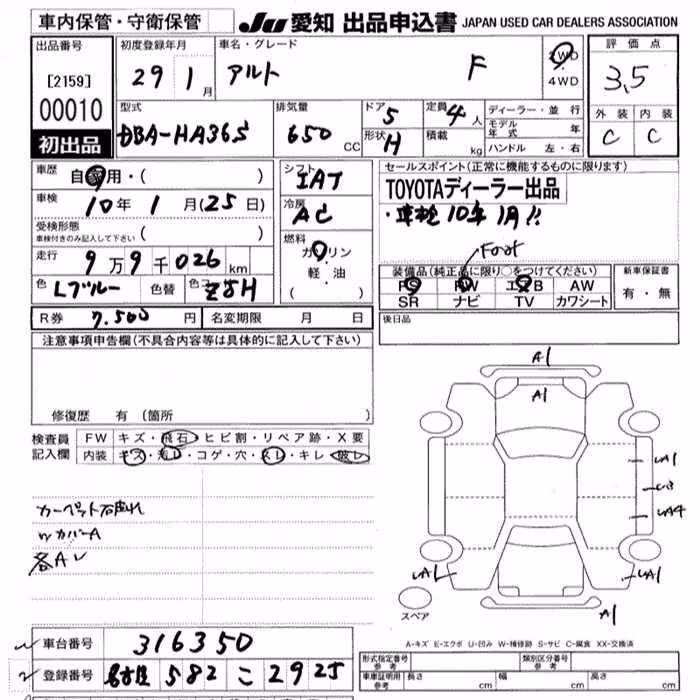 車内保管・守衛保管
JU 愛知 出品申込書 JAPAN USED CAR DEALERS ASSOCIATION
出品番号
[2159]
00010
初出品
初度登録年月
29 1 月
車名・グレード
アルト F
2WD
・
4WD
評価点
3,5
外装 内装
C C
型式
DBA-HA36S
排気量
650 CC
ドア 5
形状 H
定員 4 人
積載 kg
ディーラー・並 行
モデル年式 年
ハンドル 左・右
車歴 自家用・( )
車検 10年 1 月(25日)
受検形態
車検付きのみ記入して下さい ( )
走行 9万9千026km
色 Lブルー 色替 色コ Z5H
シフト
IAT
冷房
AC
燃料
ガソリン
・
軽・油
( )
セールスポイント(正常に機能するものに限ります)
TOYOTAディーラー出品
・車検10年1月!!
Foot
装備品(純正品に限り○をつけてください)
PS PW エアB AW
SR ナビ TV カワシート
新車保証書
有・無
R券 7.500 円 名変期限 月 日
後日品
注意事項申告欄(不具合内容等は具体的に記入して下さい)
修復歴 有(箇所 )
検査員
記入欄
FW キズ・飛石・ヒビ割・リペア跡・X要
内装 キズ・汚レ・コゲ・穴・スレ・キレ・破レ
カーペット破れ
カバーA
各AU
A1
A1
UA1
U3
UA4
UA1
UA1
A1
スペア
A-キズ E-エクボ U-凹み W-補修跡 S-サビ C-腐食 XX-交換済
車台番号 316350
登録番号 名古屋 582 こ 2925
形式指定番号
参考
類別区分番号
参考
車庫証明用
参考
長さ cm 幅 cm 高さ cm